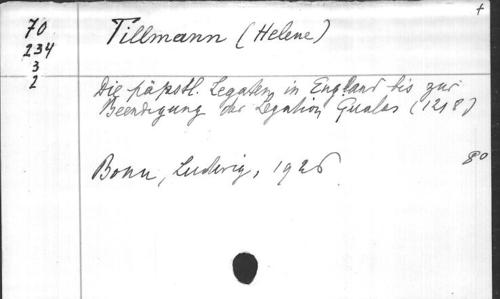 +
70
234
3
2
Tillmann (Helene)
Die päpstl. Legaten in England bis zur
Beendigung der Legation Gualas (1218)
Bonn, Ludwig, 1926
8°